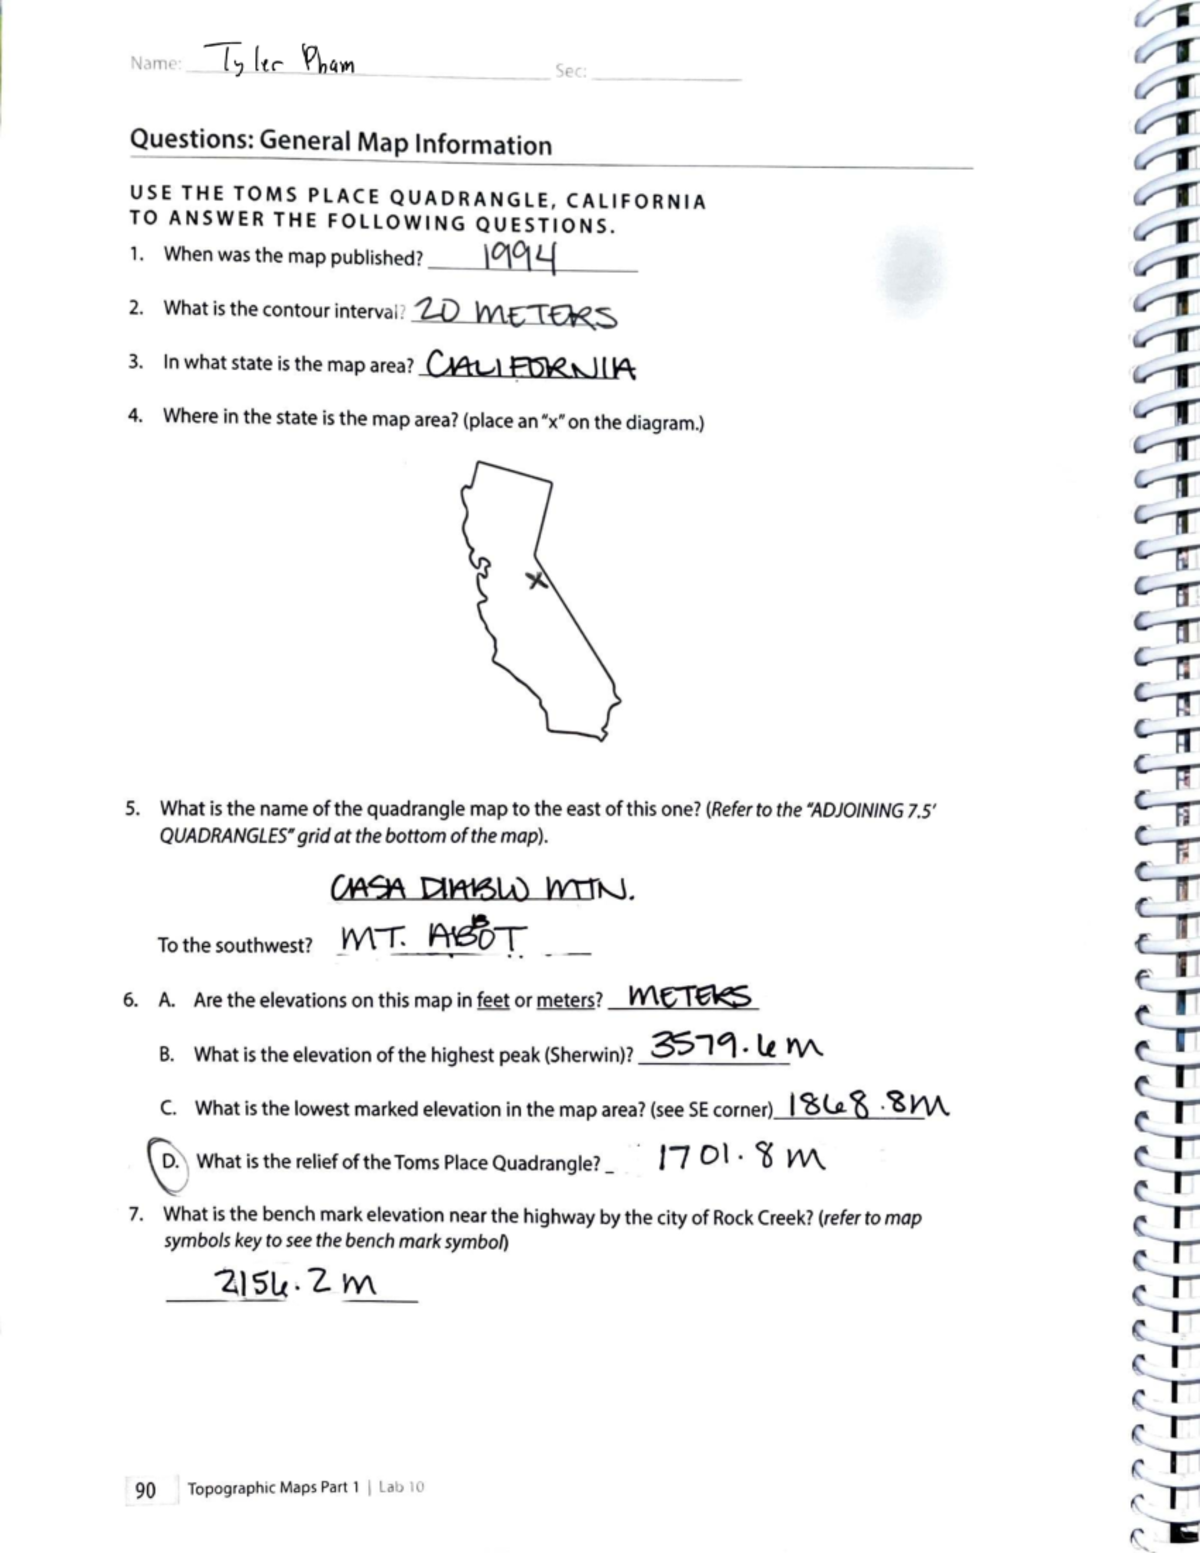 Name: Tyler Pham Sec:
Questions: General Map Information
USE THE TOMS PLACE QUADRANGLE, CALIFORNIA
TO ANSWER THE FOLLOWING QUESTIONS.
1. When was the map published? 1994
2. What is the contour interval? 20 METERS
3. In what state is the map area? CALIFORNIA
4. Where in the state is the map area? (place an "x" on the diagram.)
X
5. What is the name of the quadrangle map to the east of this one? (Refer to the "ADJOINING 7.5'
QUADRANGLES" grid at the bottom of the map).
CASA DIABLO MTN.
To the southwest? MT. ABBOT
6. A. Are the elevations on this map in feet or meters? METERS
B. What is the elevation of the highest peak (Sherwin)? 3579.6m
C. What is the lowest marked elevation in the map area? (see SE corner) 1868.8m
D. What is the relief of the Toms Place Quadrangle? 1701.8 m
7. What is the bench mark elevation near the highway by the city of Rock Creek? (refer to map
symbols key to see the bench mark symbol)
2156.2 m
90 Topographic Maps Part 1 | Lab 10